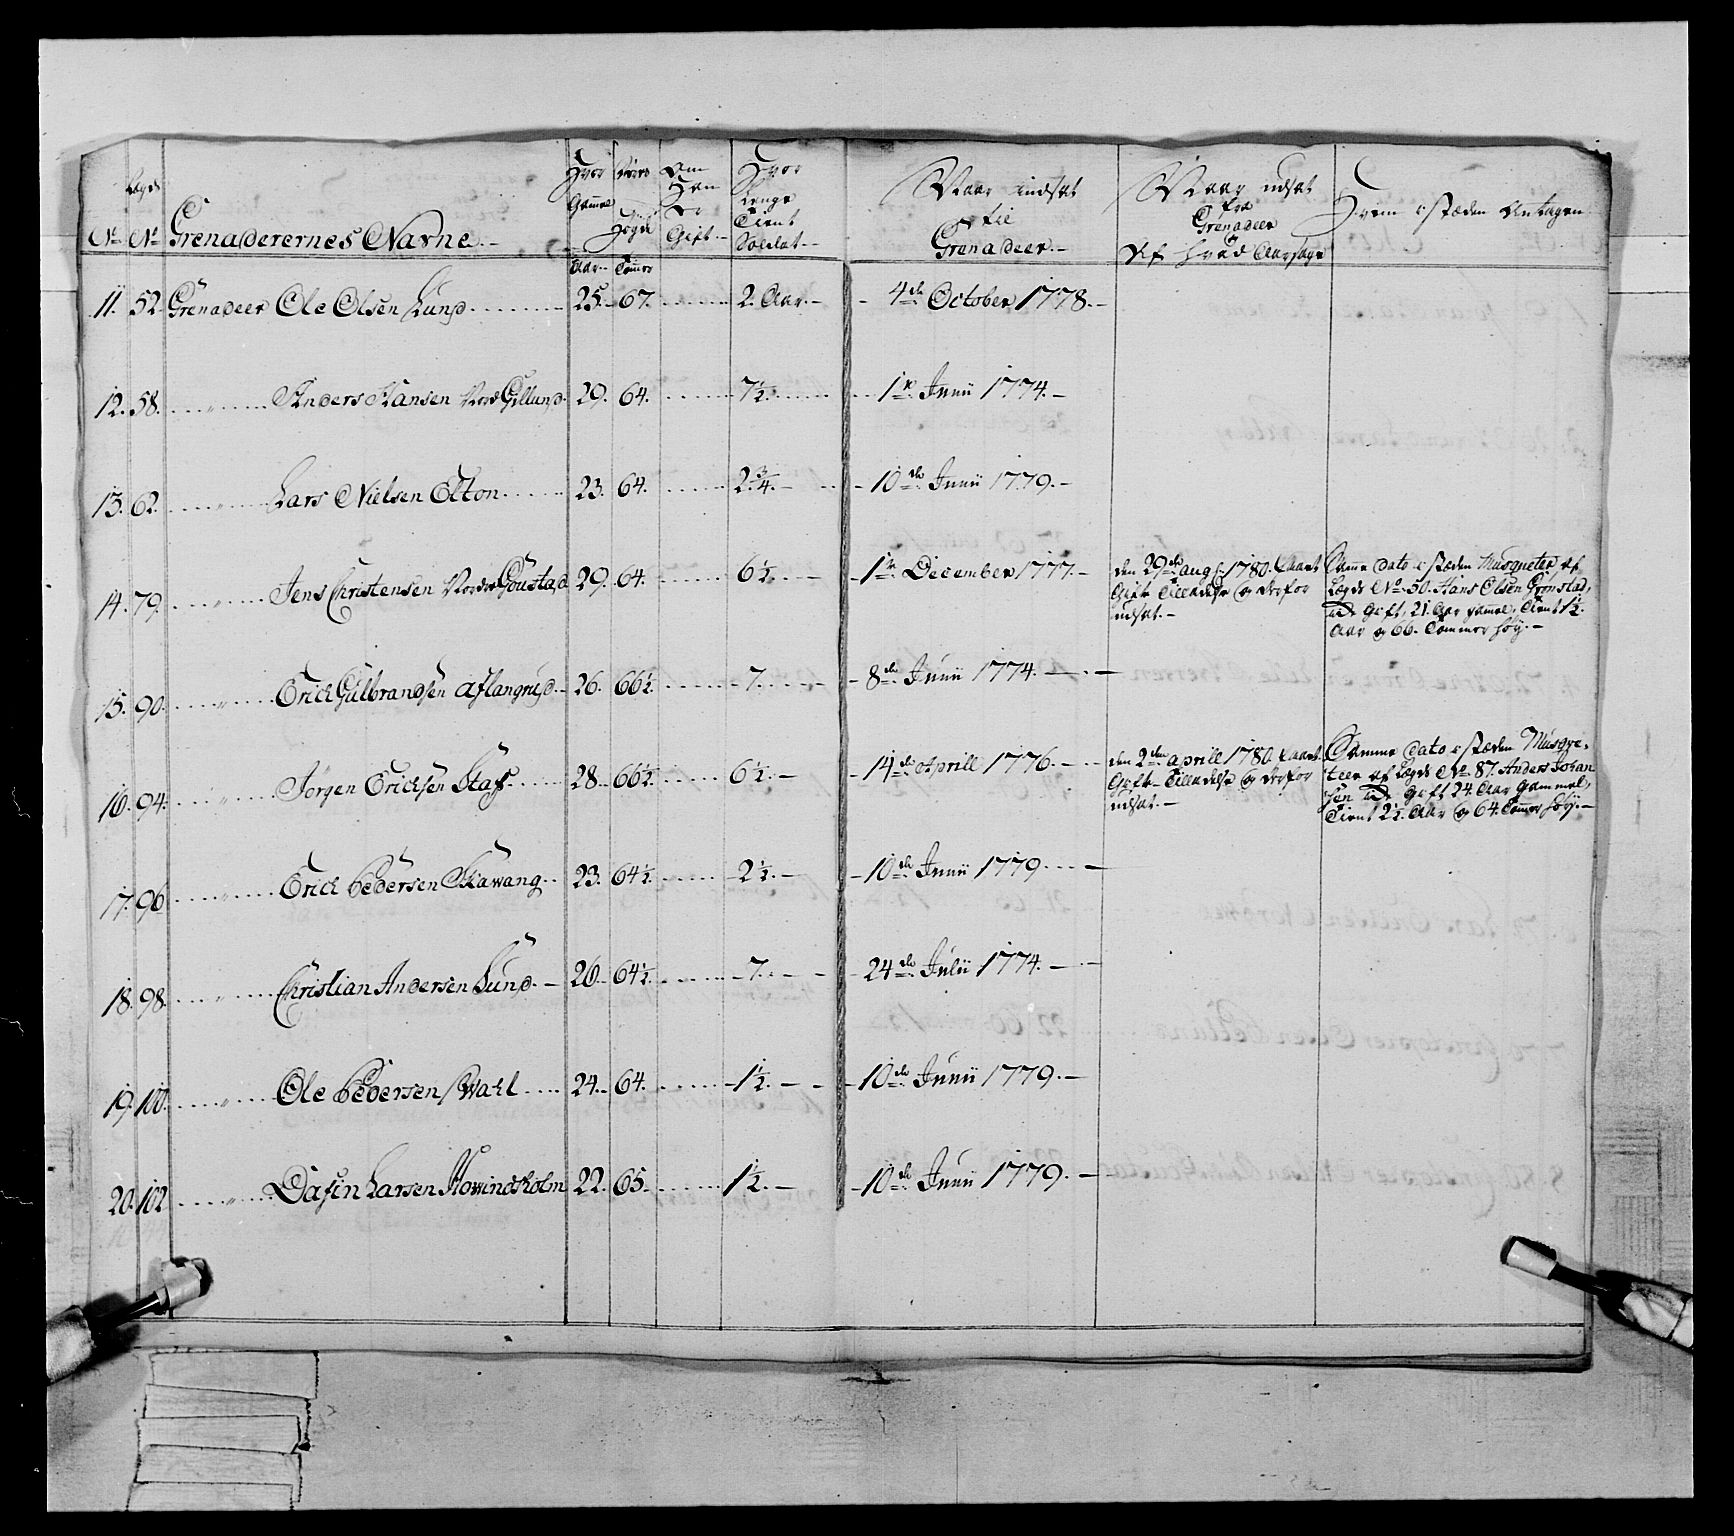 Nº Lægds Nº Grenaderernes Navne.- Hvor Gammel Om Han Er Gift.- Hvor Lenge Tient Soldat.- Naar indsat til Grenadeer.- Naar udsat fra Grenadeer og Af hvad Aarsage Hvem i stæden Antagen
Aar.- Tommer
11. 52. Grenadeer Ole Olsen Lund 25.- 67. 2. Aar.- 4de October 1778.-
12. 58. Anders Hansen Nord Gillund. 29. 64. 7½. 1te Junii 1774.-
13. 62. Lars Nielsen Alton 23. 64. 2¾.- 10de Junii 1779.-
14. 79. Jens Christensen Nordre Goustad 29. 64. 6½.- 1te December 1777.- den 29de aug: 1780. faaet Gifte Tilladelse og derfor udsat.- Same dato i stæden Musqueter af Lægds Nº 50. Hans Olsen Grønstad, icke Gift, 21. Aar gamel, Tient 1½. Aar og 66. Tommer høy.-
15. 90. Erich Gulbrandsen Aslangrud.- 26. 66½. 7. 8de Junii 1774.-
16. 94. Jørgen Erichsen Staf 28.- 66½. 6½.- 14de Aprill 1776.- den 2den aprill 1780. faaet Gifte-Tilladelse og derfor udsat.- Samme dato i stæden Musque-
teer af Lægds Nº 87. Anders Johan
sen icke Gift 24. Aar Gammel,
Tient 2½. Aar og 64. Tommer høy.-
17. 96. Erich Pedersen Skavang 23. 64½. 2½.- 10de Junii 1779.-
18. 98. Christian Andersen Lund.- 26.- 64½. 7.- 24de Julii 1774.-
19. 100. Ole Pedersen Wahl 24.- 64. 1½.- 10de Junii 1779.-
20. 102. Dafin Larsen Howindsholm 22. 65. 1½.- 10de Junii 1779.-